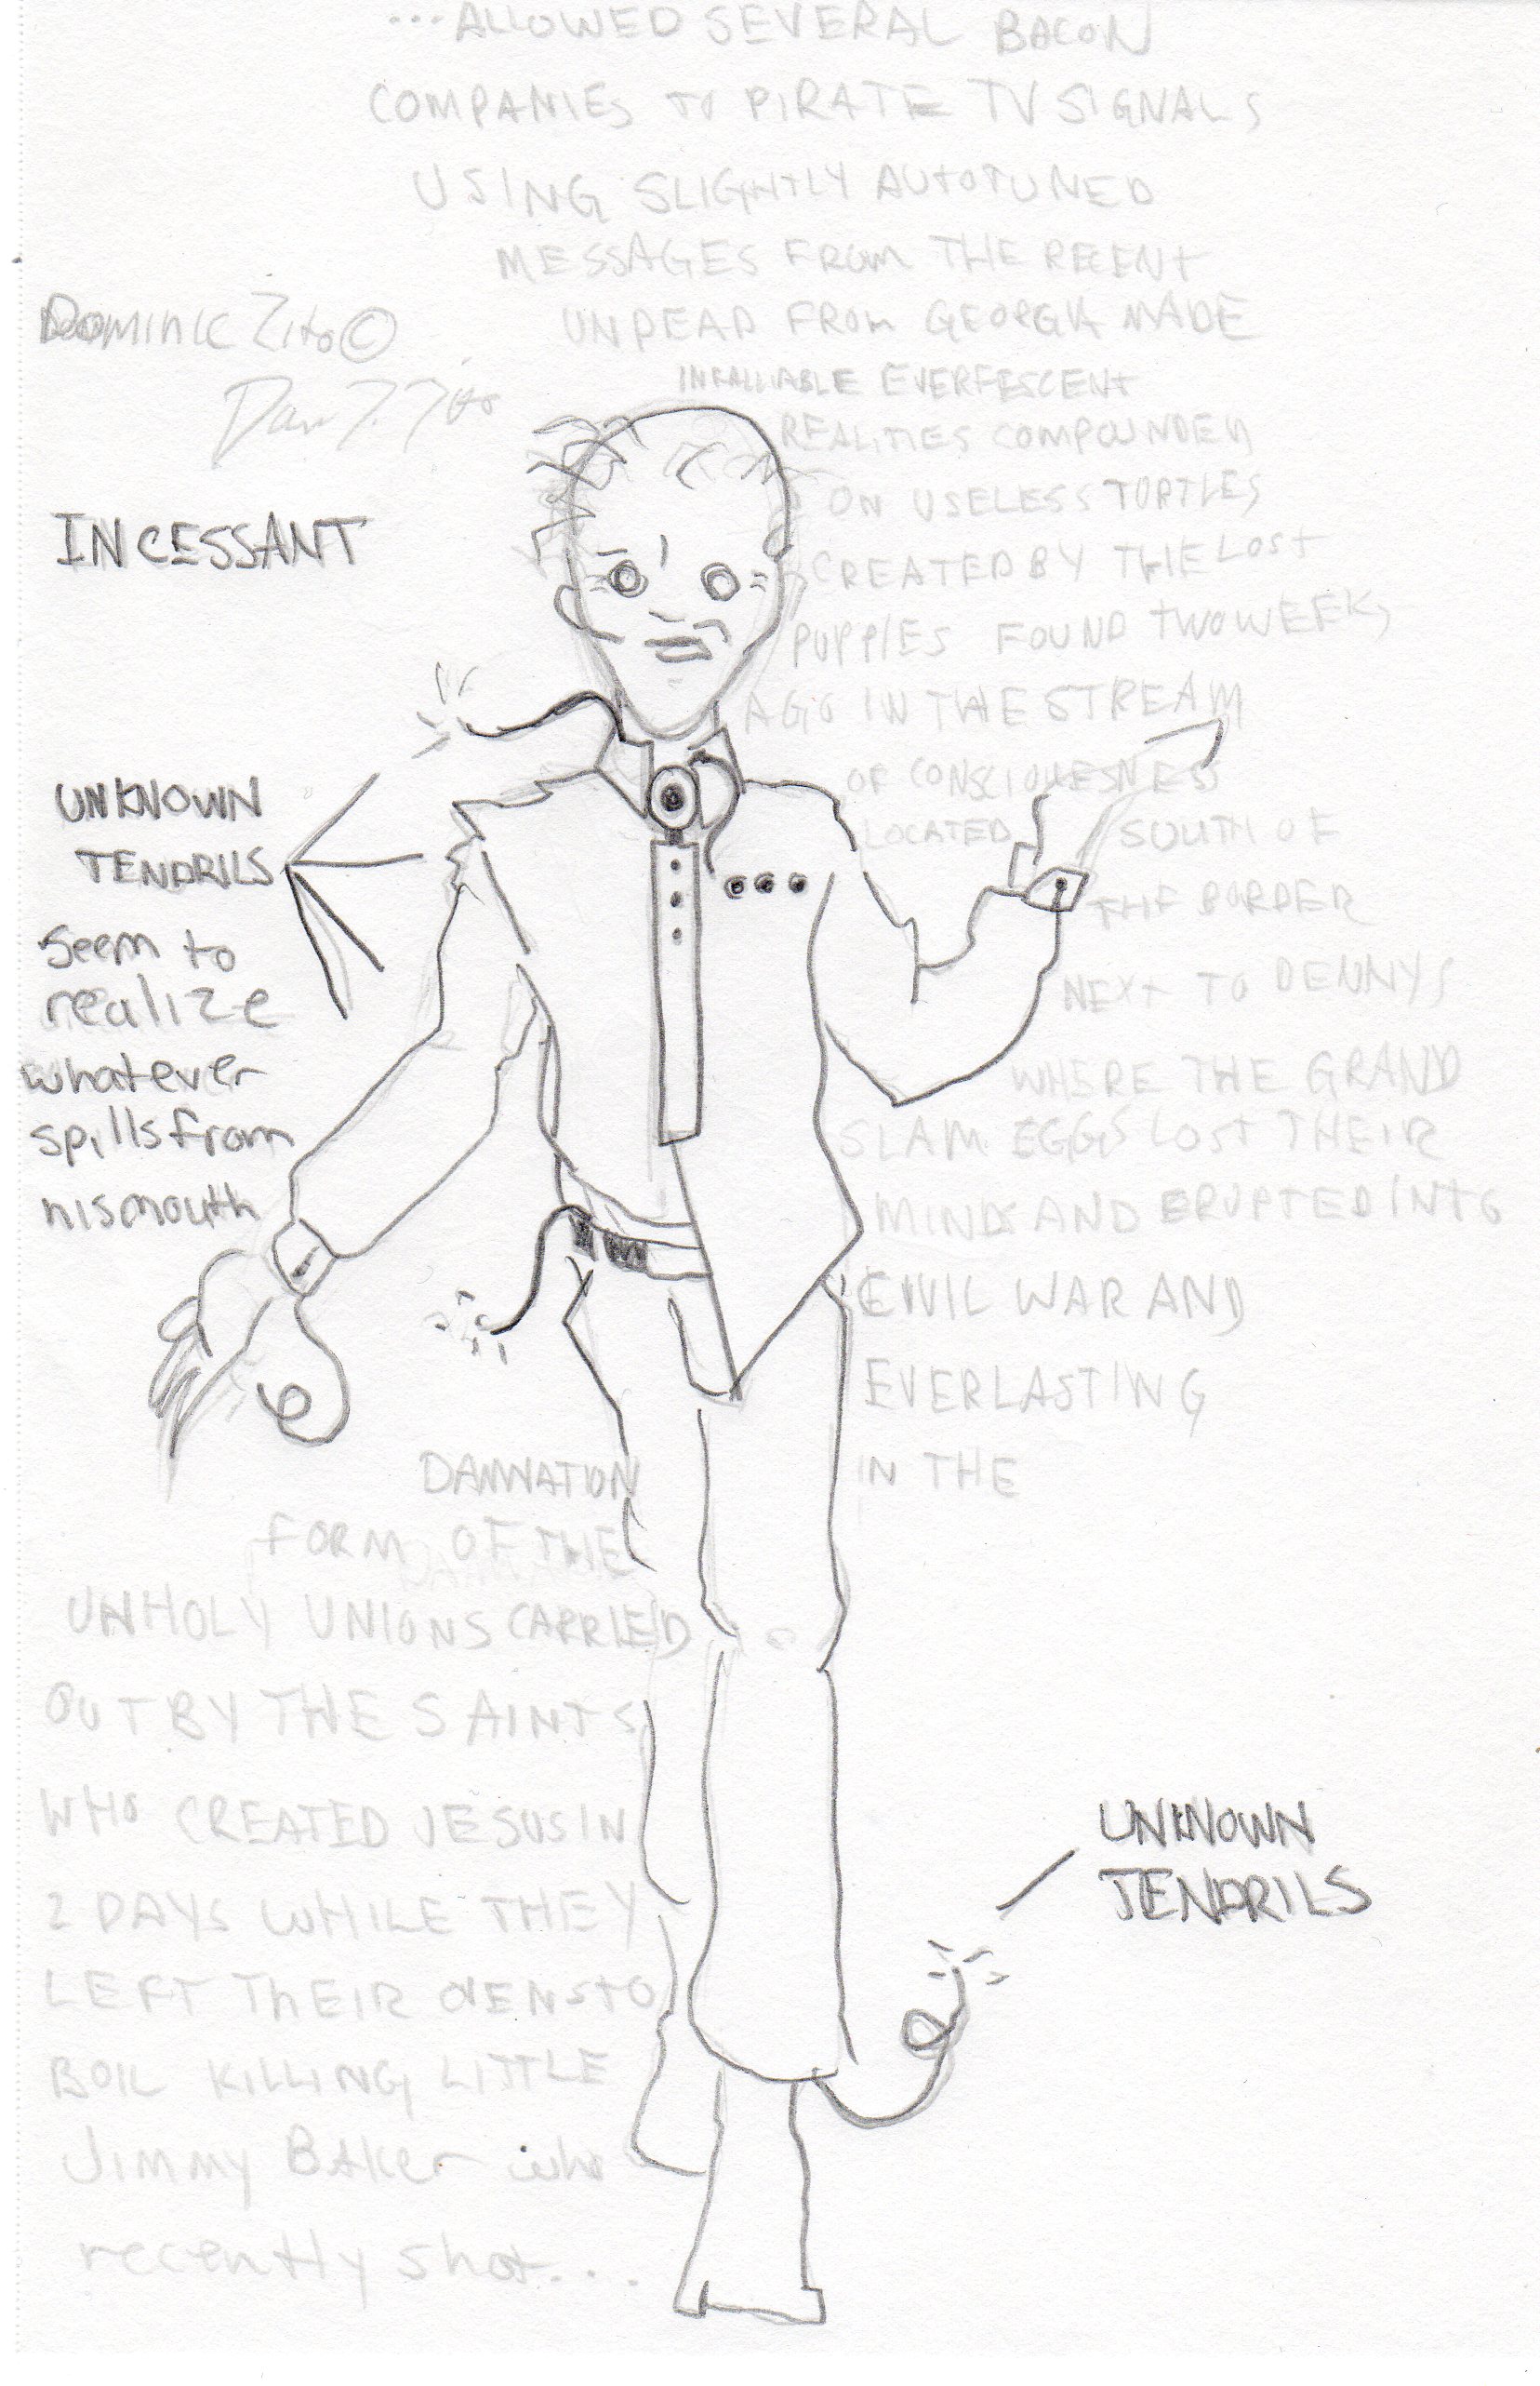 ...ALLOWED SEVERAL BACON
COMPANIES TO PIRATE TV SIGNALS
USING SLIGHTLY AUTOTUNED
MESSAGES FROM THE RECENT
UNDEAD FROM GEORGIA MADE
INFALLIABLE EVERFESCENT
REALITIES COMPOUNDED
ON USELESS TURTLES
CREATED BY THE LOST
PUPPIES FOUND TWO WEEKS
AGO IN THE STREAM
OF CONSCIOUESNESS
LOCATED SOUTH OF
THE BORDER
NEXT TO DENNYS
WHERE THE GRAND
SLAM EGGS LOST THEIR
MINDS AND ERUPTED INTO
CIVIL WAR AND
EVERLASTING
IN THE
DAMNATION
FORM OF THE
UNHOLY UNIONS CARRIED
OUT BY THE SAINTS
WHO CREATED JESUS IN
2 DAYS WHILE THEY
LEFT THEIR OVENS TO
BOIL KILLING LITTLE
Jimmy Baker who
recently shot...
Dominic Zito ©
INCESSANT
UNKNOWN
TENDRILS
Seem to
realize
whatever
spills from
his mouth
UNKNOWN
TENDRILS